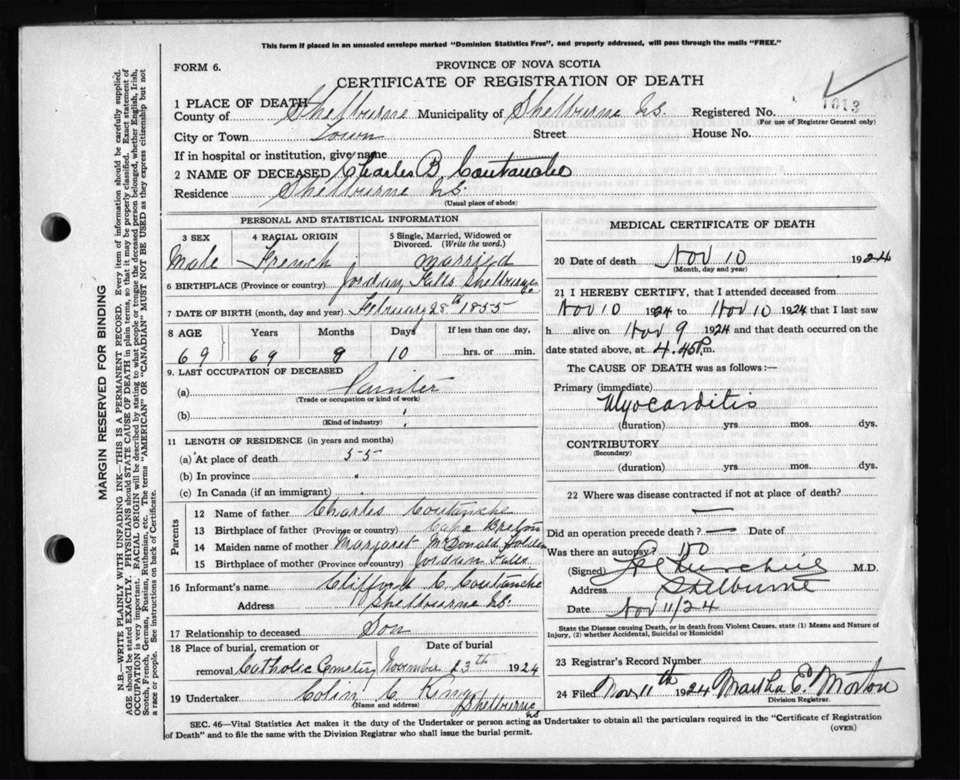 This form if placed in an unsealed envelope marked "Dominion Statistics Free", and properly addressed, will pass through the mails "FREE."
FORM 6.
PROVINCE OF NOVA SCOTIA
CERTIFICATE OF REGISTRATION OF DEATH
1013
1 PLACE OF DEATH
County of Shelburne Municipality of Shelburne N.S. Registered No.
(For use of Registrar General only)
City or Town Town Street House No.
If in hospital or institution, give name
2 NAME OF DECEASED Charles B. Coutanche
Residence Shelburne N.S.
(Usual place of abode)
PERSONAL AND STATISTICAL INFORMATION
3 SEX 4 RACIAL ORIGIN 5 Single, Married, Widowed or Divorced. (Write the word.)
Male French married
6 BIRTHPLACE (Province or country) Jordan Falls Shelburne
7 DATE OF BIRTH (month, day and year) February 28th 1855
8 AGE Years Months Days If less than one day,
69 69 9 10 hrs. or min.
9. LAST OCCUPATION OF DECEASED
(a) Painter
(Trade or occupation or kind of work)
(b)
(Kind of industry)
11 LENGTH OF RESIDENCE (in years and months)
(a) At place of death 55
(b) In province
(c) In Canada (if an immigrant)
Parents
12 Name of father Charles Coutanche
13 Birthplace of father (Province or country) Cape Breton
14 Maiden name of mother Margaret McDonald Holden
15 Birthplace of mother (Province or country) Jordan Falls
16 Informant's name Clifford C. Coutanche
Address Shelbourne N.S.
17 Relationship to deceased Son
18 Place of burial, cremation or removal Catholic Cemetry
Date of burial November 23th 1924
19 Undertaker Colin C. King Shelbourne N.S.
(Name and address)
MEDICAL CERTIFICATE OF DEATH
20 Date of death Nov 10 1924
(Month, day and year)
21 I HEREBY CERTIFY, that I attended deceased from
Nov 10 1924 to Nov 10 1924 that I last saw
h alive on Nov 9 1924 and that death occurred on the
date stated above, at 4.45 P.m.
The CAUSE OF DEATH was as follows:—
Primary (immediate)
Myocarditis
(duration) yrs. mos. dys.
CONTRIBUTORY
(Secondary)
(duration) yrs. mos. dys.
22 Where was disease contracted if not at place of death?
—
Did an operation precede death? — Date of
Was there an autopsy? No
(Signed) M.D.
Address Shelburne
Date Nov 11/24
State the Disease causing Death, or in death from Violent Causes, state (1) Means and Nature of Injury, (2) whether Accidental, Suicidal or Homicidal
23 Registrar's Record Number
24 Filed Nov 11th 1924 Martha E. Morton
Division Registrar.
SEC. 46—Vital Statistics Act makes it the duty of the Undertaker or person acting as Undertaker to obtain all the particulars required in the "Certificate of Registration
of Death" and to file the same with the Division Registrar who shall issue the burial permit.
(OVER)
MARGIN RESERVED FOR BINDING
N.B.—WRITE PLAINLY WITH UNFADING INK—THIS IS A PERMANENT RECORD. Every item of information should be carefully supplied.
AGE should be stated EXACTLY. PHYSICIANS should STATE CAUSE OF DEATH in plain terms, so that it may be properly classified. Exact statement of
OCCUPATION is very important. RACIAL ORIGIN will be described by stating to what people or tongue the deceased person belonged, whether English, Irish,
Scotch, French, German, Russian, Ruthenian, etc. The terms "AMERICAN" OR "CANADIAN" MUST NOT BE USED as they express citizenship but not
a race or people. See instructions on back of Certificate.